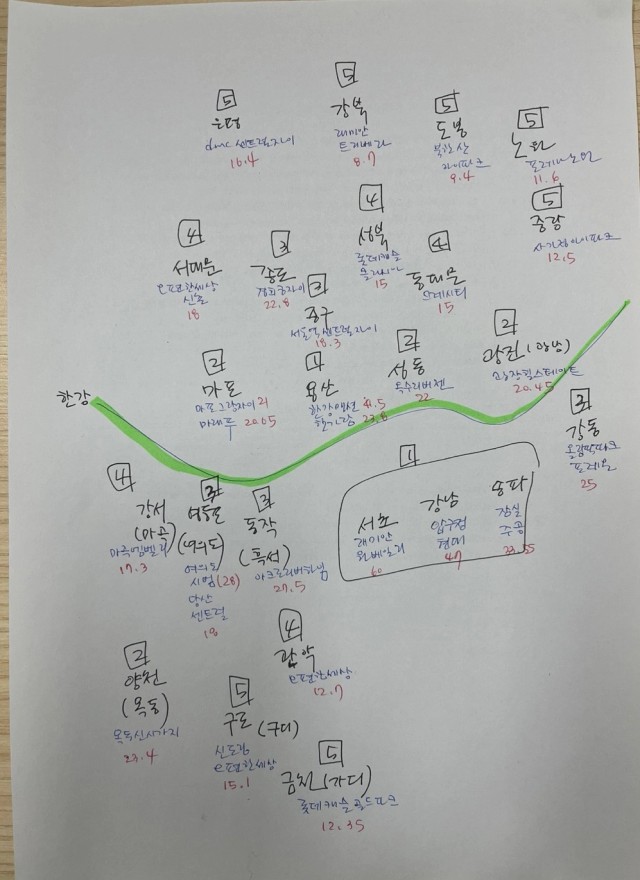 5
은평
dmc 센트럴자이
16.4
5
강북
래미안
트리베라
8.7
5
도봉
북한산
아이파크
9.4
5
노원
포레나노원
11.6
5
중랑
사가정아이파크
12.5
4
서대문
e편한세상
신촌
18
3
종로
경희궁자이
22.8
4
성북
롯데캐슬
클라시아
15
4
동대문
크레시티
15
3
중구
서울역센트럴자이
18.3
2
마포
마포그랑자이 21
마래푸 20.05
1
용산
한강맨션
한가람 23.8
2
성동
옥수리버젠
22
2
광진 (광남)
광장힐스테이트
20.45
한강
3
강동
올림픽파크
포레온
25
1
서초
래미안
원베일리
60
강남
압구정
현대
47
송파
잠실
주공
4
강서
(마곡)
마곡엠밸리
17.3
3
영등포
(여의도)
여의도
시범 (28)
당산
센트럴
18
3
동작
(흑석)
아크로리버하임
27.5
4
관악
e편한세상
12.7
2
양천
(목동)
목동신시가지
23.4
5
구로 (구디)
신도림
e편한세상
15.1
5
금천 (가디)
롯데캐슬골드파크
12.35